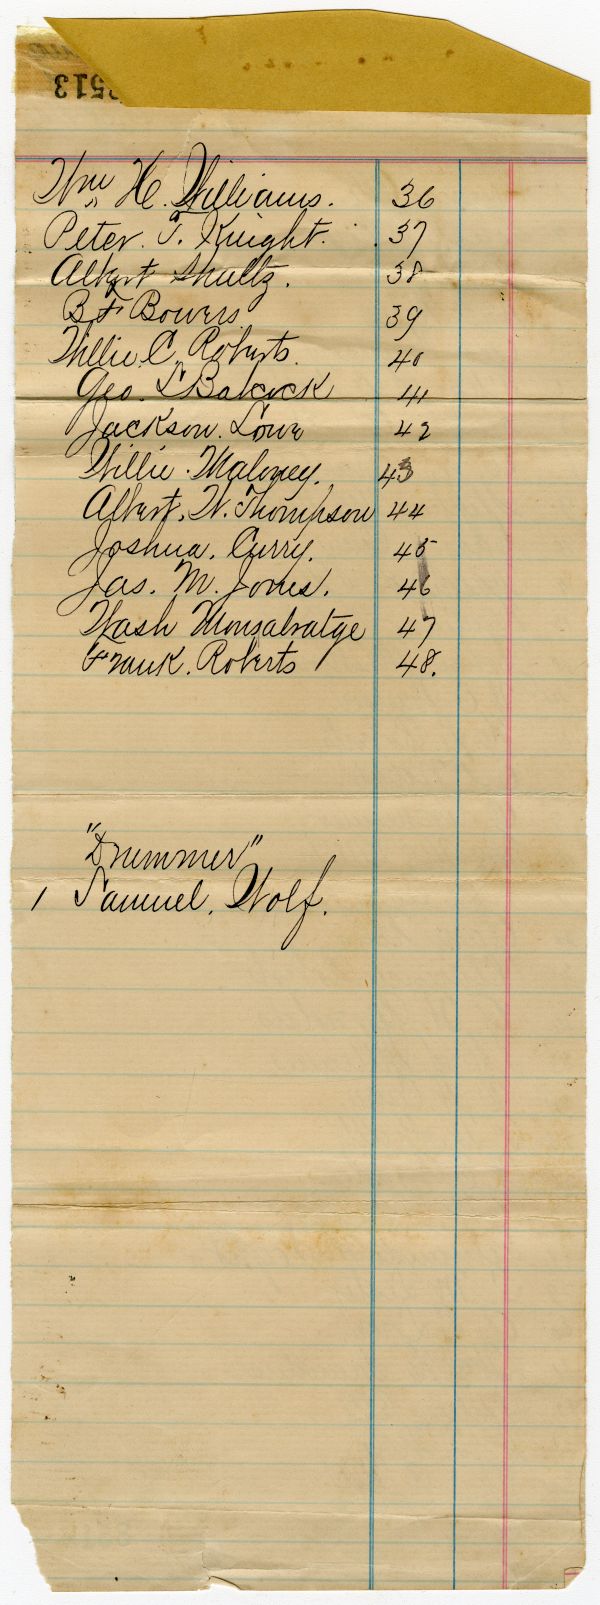 513
Wm H. Williams. 36
Peter. T. Knight. 37
Albert Shultz. 38
B F Bowers 39
Willie. C. Roberts. 40
Geo. L Babcock 41
Jackson. Lowe 42
Willie. Maloney. 43
Albert. W. Thompson 44
Joshua. Curry. 45
Jas. M. Jones. 46
Wash Monsalvatge 47
Frank. Roberts 48.
"Drummer"
1 Samuel. Wolf.